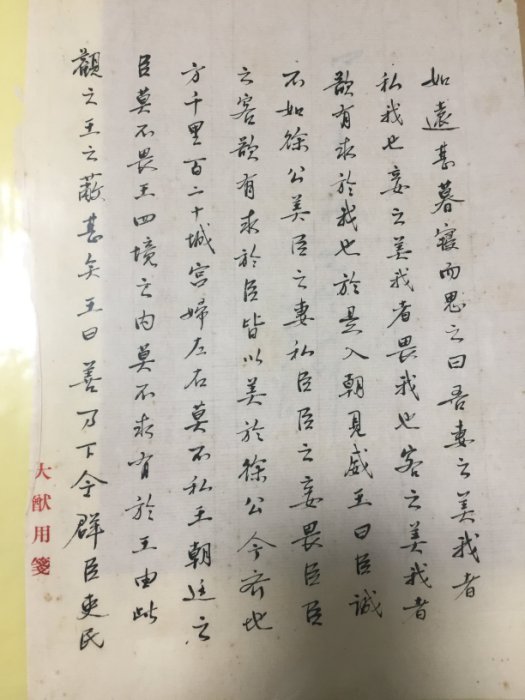 如遠甚暮寢而思之曰吾妻之美我者
私我也妾之美我者畏我也客之美我者
欲有求於我也於是入朝見威王曰臣誠
不如徐公美臣之妻私臣臣之妾畏臣臣
之客欲有求於臣皆以美於徐公今齐地
方千里百二十城宮婦左右莫不私王朝廷之
臣莫不畏王四境之內莫不求有於王由此
觀之王之蔽甚矣王曰善乃下令群臣吏民
大猷用箋